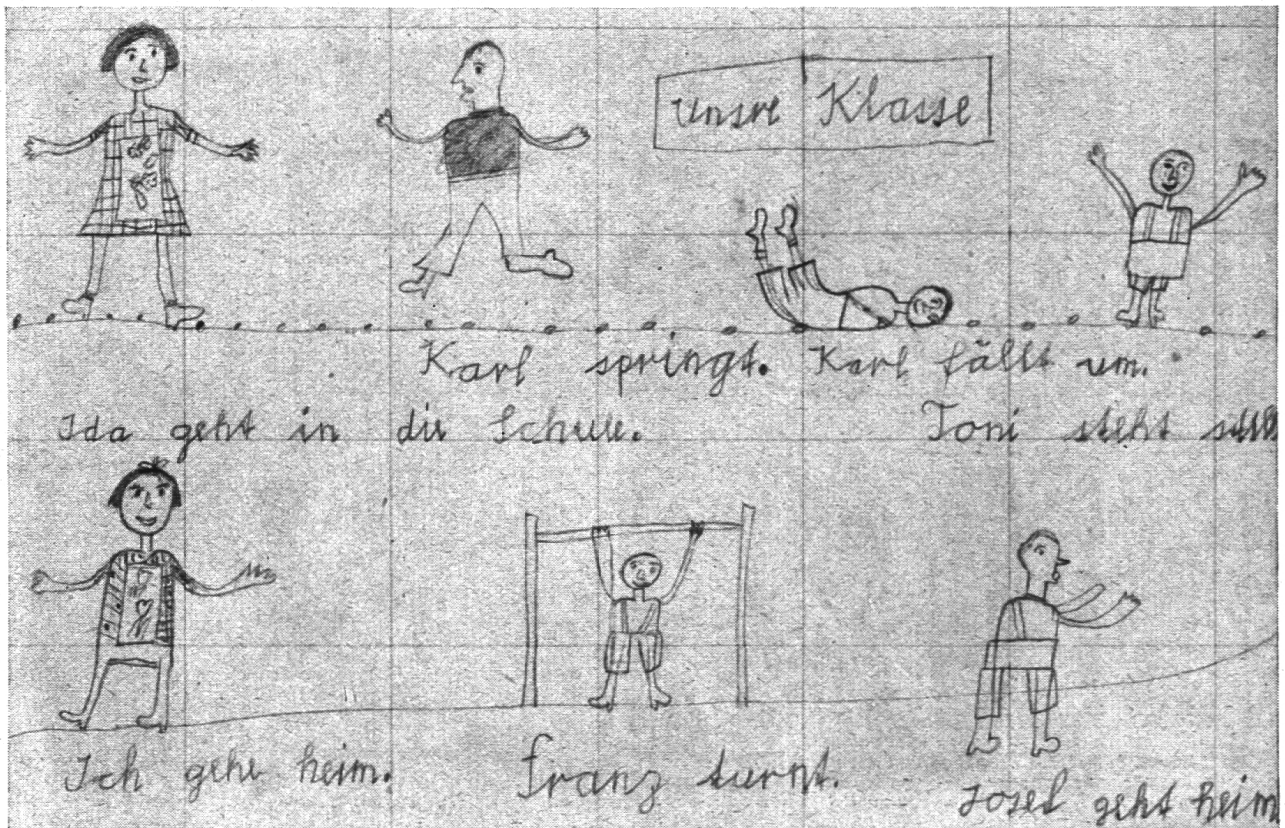 unsre Klasse
Karl springt. Karl fällt um.
Ida geht in die Schule. Toni steht still
Ich gehe heim. Franz turnt. Josef geht heim